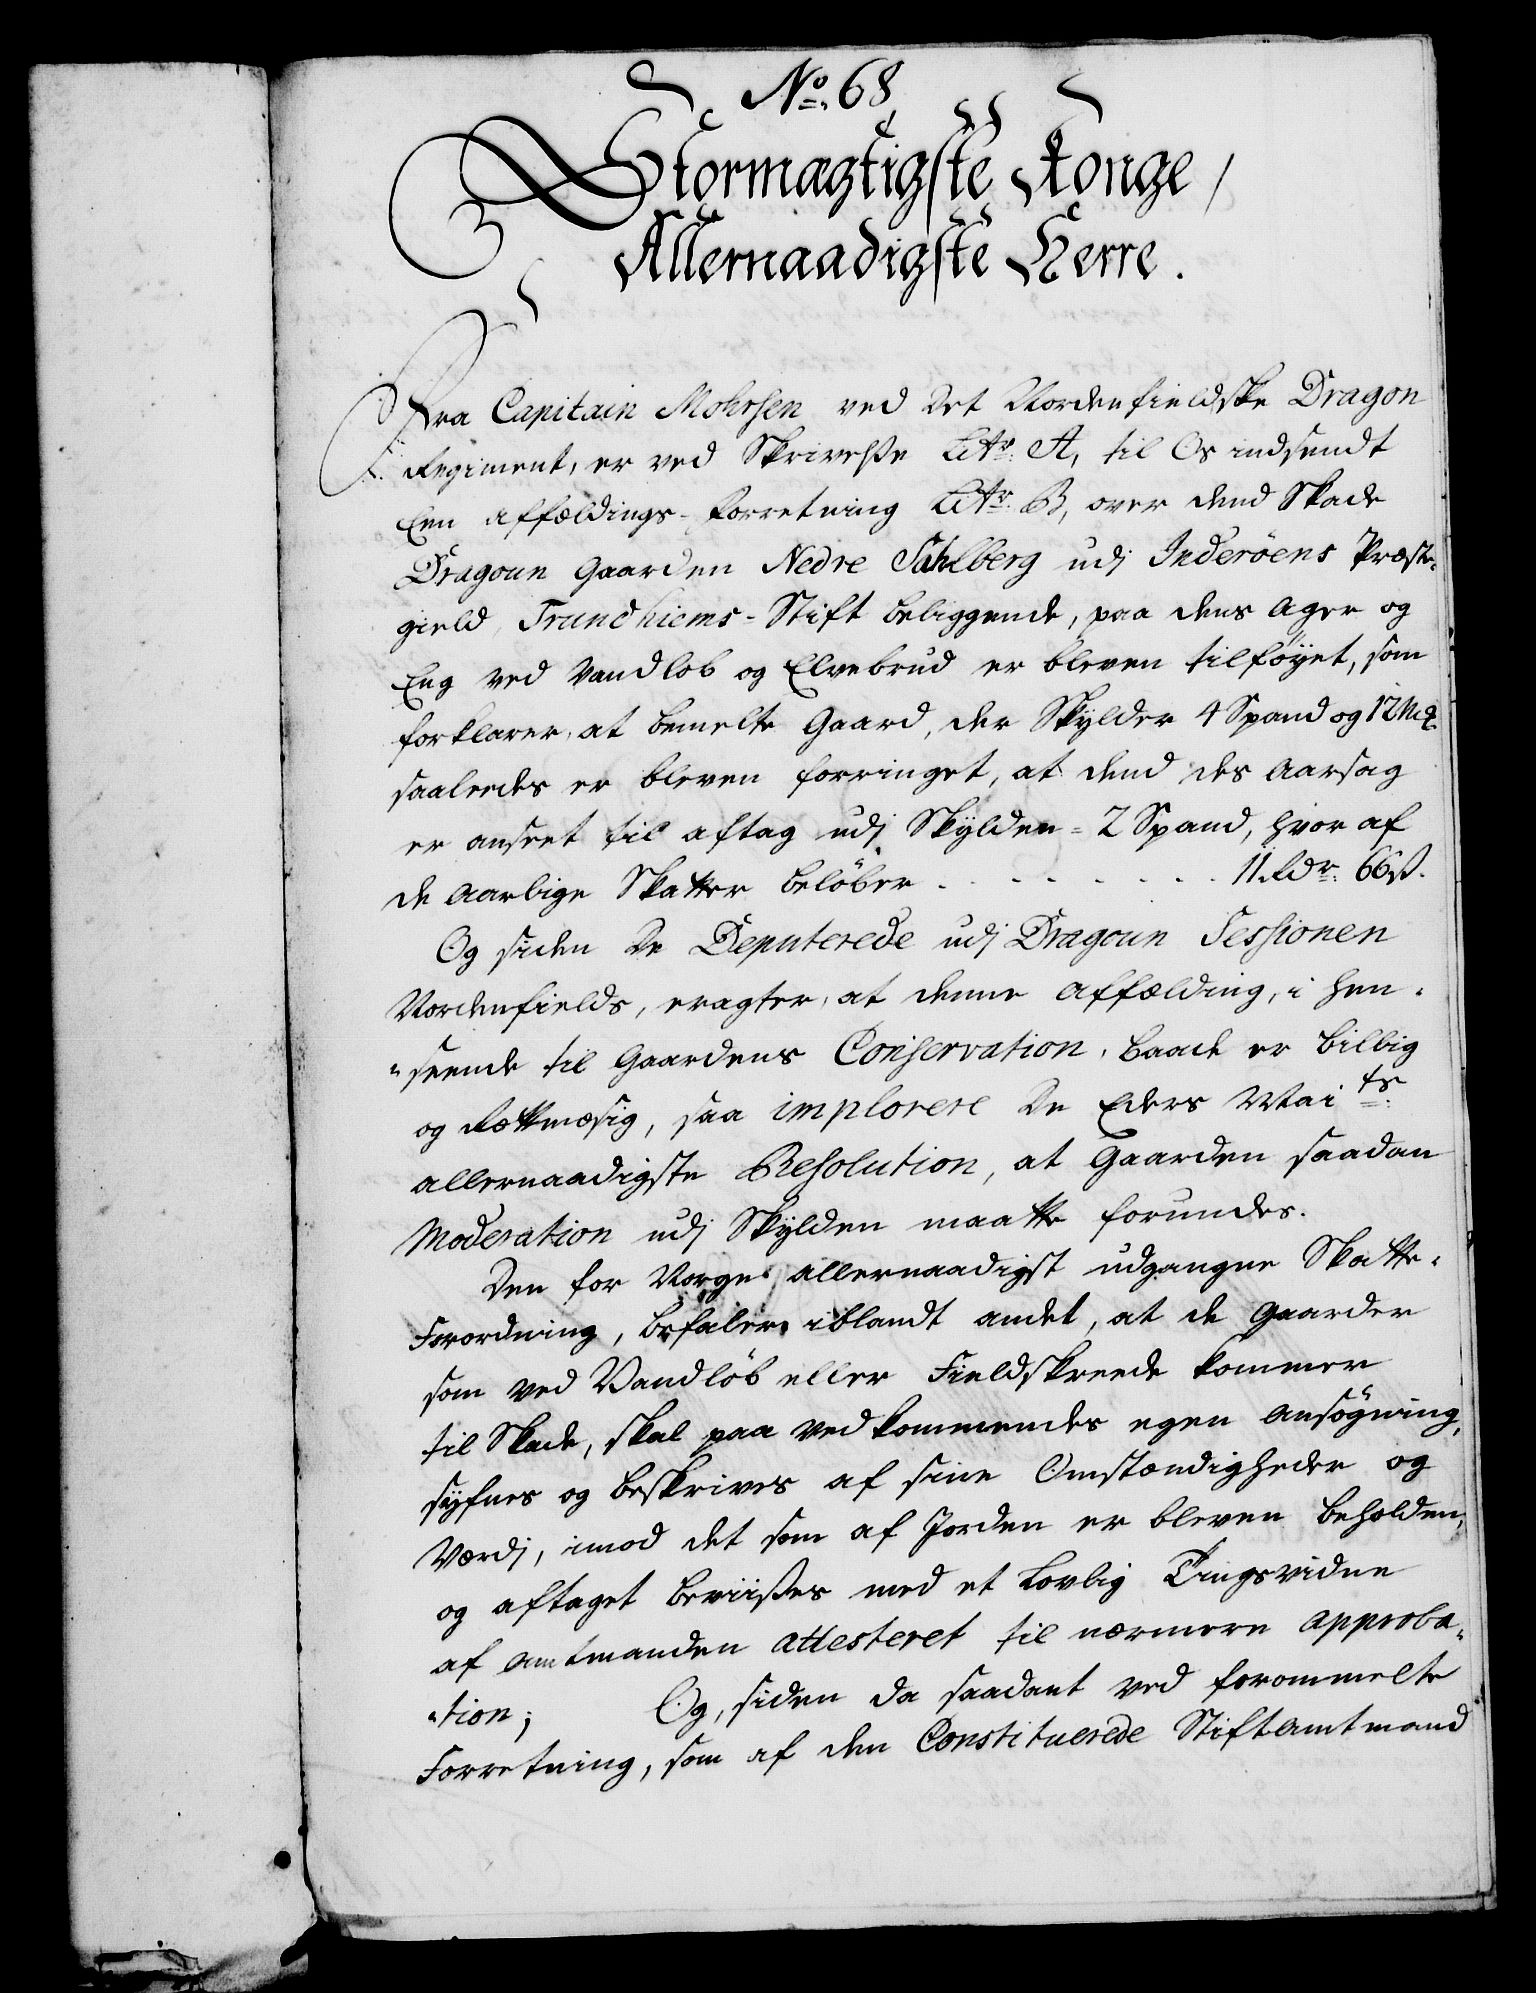 No. 68
Stormægtigste Konge,
Allernaadigste Herre.
Fra Capitain Mohrsen ved det Nordenfieldske Dragon
Regiment, er ved Skrivelse Litr: A, til Os indsendt
Een affældings-Forretning Litr: B, over dend Skade
Dragoun Gaarden Nedre Sahlberg udj Inderöens Præste-
gield, Trundhiems-Stift beliggende, paa dens Ager og
Eng ved Vandlob og Elvebrud er bleven tilföyet, som
forklarer, at bemelte Gaard, der Skylder 4 Spand og 12 Mk
saaledes er bleven forringet, at dend des Aarsag
er anseet til aftag udj Skylden = 2 Spand, hvor af
de Aarlige Skatter belöber . - - - - - - 11 Rdr: 66 ß.
Og siden De Deputerede udj Dragoun Sessionen
Nordenfields, eragter, at denne affælding, i Hen-
-seende til Gaardens Conservation, baade er billig
og Rettmæsig, saa implorere De Eders Maits:
allernaadigste Resolution, at Gaarden saadan
Moderation udj Skylden maatte forundes.
Den for Norge allernaadigst udgangne Skatte-
Forordning, befaler iblandt andet, at de Gaarder
som ved Vandlöb eller Fieldskreede kommer
til Skade, skal paa Vedkommendes egen Ansögning,
syfnes og beskrives af sine Omstændigheder og
Værdj, imod det som af Jorden er bleven beholden,
og aftaget beviises med et Lovlig Tingsvidne
af Amtmanden attesteret til nærmere approba-
-tion; Og, siden da saadant ved forommelte
Forretning, som af den Constituerede Stiftamtmand